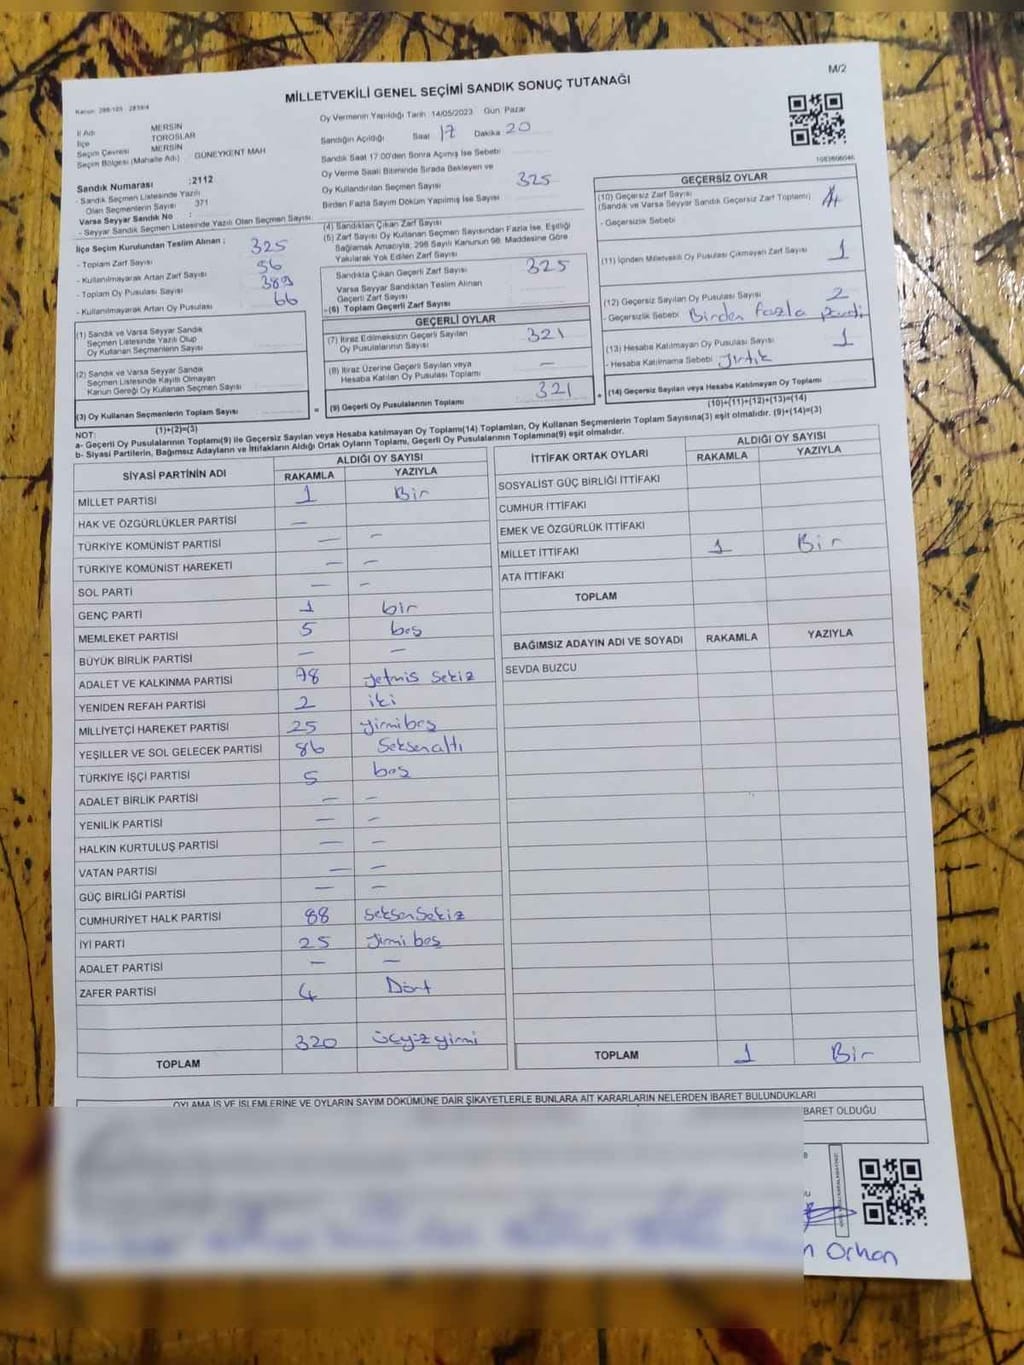 M/2
MİLLETVEKİLİ GENEL SEÇİMİ SANDIK SONUÇ TUTANAĞI
İl Adı MERSİN
İlçe TOROSLAR
Seçim Çevresi MERSİN
Seçim Bölgesi (Mahalle Adı) GÜNEYKENT MAH
Sandık Numarası :2112
- Sandık Seçmen Listesinde Yazılı
Olan Seçmenlerin Sayısı : 371
Varsa Seyyar Sandık No :
- Seyyar Sandık Seçmen Listesinde Yazılı Olan Seçmen Sayısı:
İlçe Seçim Kurulundan Teslim Alınan ;
- Toplam Zarf Sayısı 325
- Kullanılmayarak Artan Zarf Sayısı 56
- Toplam Oy Pusulası Sayısı 389
- Kullanılmayarak Artan Oy Pusulası 66
(1) Sandık ve Varsa Seyyar Sandık
Seçmen Listesinde Yazılı Olup
Oy Kullanan Seçmenlerin Sayısı
(2) Sandık ve Varsa Seyyar Sandık
Seçmen Listesinde Kayıtlı Olmayan
Kanun Gereği Oy Kullanan Seçmen Sayısı
(3) Oy Kullanan Seçmenlerin Toplam Sayısı
(1)+(2)=(3)
Oy Vermenin Yapıldığı Tarih :14/05/2023 Gün: Pazar
Sandığın Açıldığı Saat 17 Dakika 20
Sandık Saat 17.00'den Sonra Açılmış İse Sebebi:
Oy Verme Saati Bitiminde Sırada Bekleyen ve
Oy Kullandırılan Seçmen Sayısı 325
Birden Fazla Sayım Döküm Yapılmış İse Sayısı
(4) Sandıktan Çıkan Zarf Sayısı
(5) Zarf Sayısı Oy Kullanan Seçmen Sayısından Fazla İse, Eşitliği
Sağlamak Amacıyla, 298 Sayılı Kanunun 98. Maddesine Göre
Yakılarak Yok Edilen Zarf Sayısı
Sandıkta Çıkan Geçerli Zarf Sayısı 325
Varsa Seyyar Sandıktan Teslim Alınan
Geçerli Zarf Sayısı
(6) Toplam Geçerli Zarf Sayısı
GEÇERLİ OYLAR
(7) İtiraz Edilmeksizin Geçerli Sayılan
Oy Pusulalarının Sayısı 321
(8) İtiraz Üzerine Geçerli Sayılan veya
Hesaba Katılan Oy Pusulası Toplamı —
= (9) Geçerli Oy Pusulalarının Toplamı 321
GEÇERSİZ OYLAR
(10) Geçersiz Zarf Sayısı
(Sandık ve Varsa Seyyar Sandık Geçersiz Zarf Toplamı)
- Geçersizlik Sebebi
(11) İçinden Milletvekili Oy Pusulası Çıkmayan Zarf Sayısı 1
(12) Geçersiz Sayılan Oy Pusulası Sayısı 2
- Geçersizlik Sebebi Birden fazla
(13) Hesaba Katılmayan Oy Pusulası Sayısı 1
- Hesaba Katılmama Sebebi Jırtık
+ (14) Geçersiz Sayılan veya Hesaba Katılmayan Oy Toplamı
(10)+(11)+(12)+(13)=(14)
NOT:
a- Geçerli Oy Pusulalarının Toplamı(9) ile Geçersiz Sayılan veya Hesaba katılmayan Oy Toplamı(14) Toplamları, Oy Kullanan Seçmenlerin Toplam Sayısına(3) eşit olmalıdır. (9)+(14)=(3)
b- Siyasi Partilerin, Bağımsız Adayların ve İttifakların Aldığı Ortak Oyların Toplamı, Geçerli Oy Pusulalarının Toplamına(9) eşit olmalıdır.
SİYASİ PARTİNİN ADI ALDIĞI OY SAYISI
RAKAMLA YAZIYLA
MİLLET PARTİSİ 1 Bir
HAK VE ÖZGÜRLÜKLER PARTİSİ —
TÜRKİYE KOMÜNİST PARTİSİ — —
TÜRKİYE KOMÜNİST HAREKETİ — —
SOL PARTİ — —
GENÇ PARTİ 1 bir
MEMLEKET PARTİSİ 5 beş
BÜYÜK BİRLİK PARTİSİ — —
ADALET VE KALKINMA PARTİSİ 78 Jetmiş sekiz
YENİDEN REFAH PARTİSİ 2 iki
MİLLİYETÇİ HAREKET PARTİSİ 25 yirmibeş
YEŞİLLER VE SOL GELECEK PARTİSİ 86 Seksenaltı
TÜRKİYE İŞÇİ PARTİSİ 5 beş
ADALET BİRLİK PARTİSİ — —
YENİLİK PARTİSİ — —
HALKIN KURTULUŞ PARTİSİ — —
VATAN PARTİSİ — —
GÜÇ BİRLİĞİ PARTİSİ — —
CUMHURİYET HALK PARTİSİ 88 SeksenSekiz
İYİ PARTİ 25 Jirmi beş
ADALET PARTİSİ — —
ZAFER PARTİSİ 4 Dört
320 üçyüzyirmi
TOPLAM
İTTİFAK ORTAK OYLARI ALDIĞI OY SAYISI
RAKAMLA YAZIYLA
SOSYALİST GÜÇ BİRLİĞİ İTTİFAKI
CUMHUR İTTİFAKI
EMEK VE ÖZGÜRLÜK İTTİFAKI
MİLLET İTTİFAKI 1 Bir
ATA İTTİFAKI
TOPLAM
BAĞIMSIZ ADAYIN ADI VE SOYADI RAKAMLA YAZIYLA
SEVDA BUZCU
TOPLAM 1 Bir
OYLAMA İŞ VE İŞLEMLERİNE VE OYLARIN SAYIM DÖKÜMÜNE DAİR ŞİKAYETLERLE BUNLARA AİT KARARLARIN NELERDEN İBARET BULUNDUKLARI
BARET OLDUĞU
Orhan